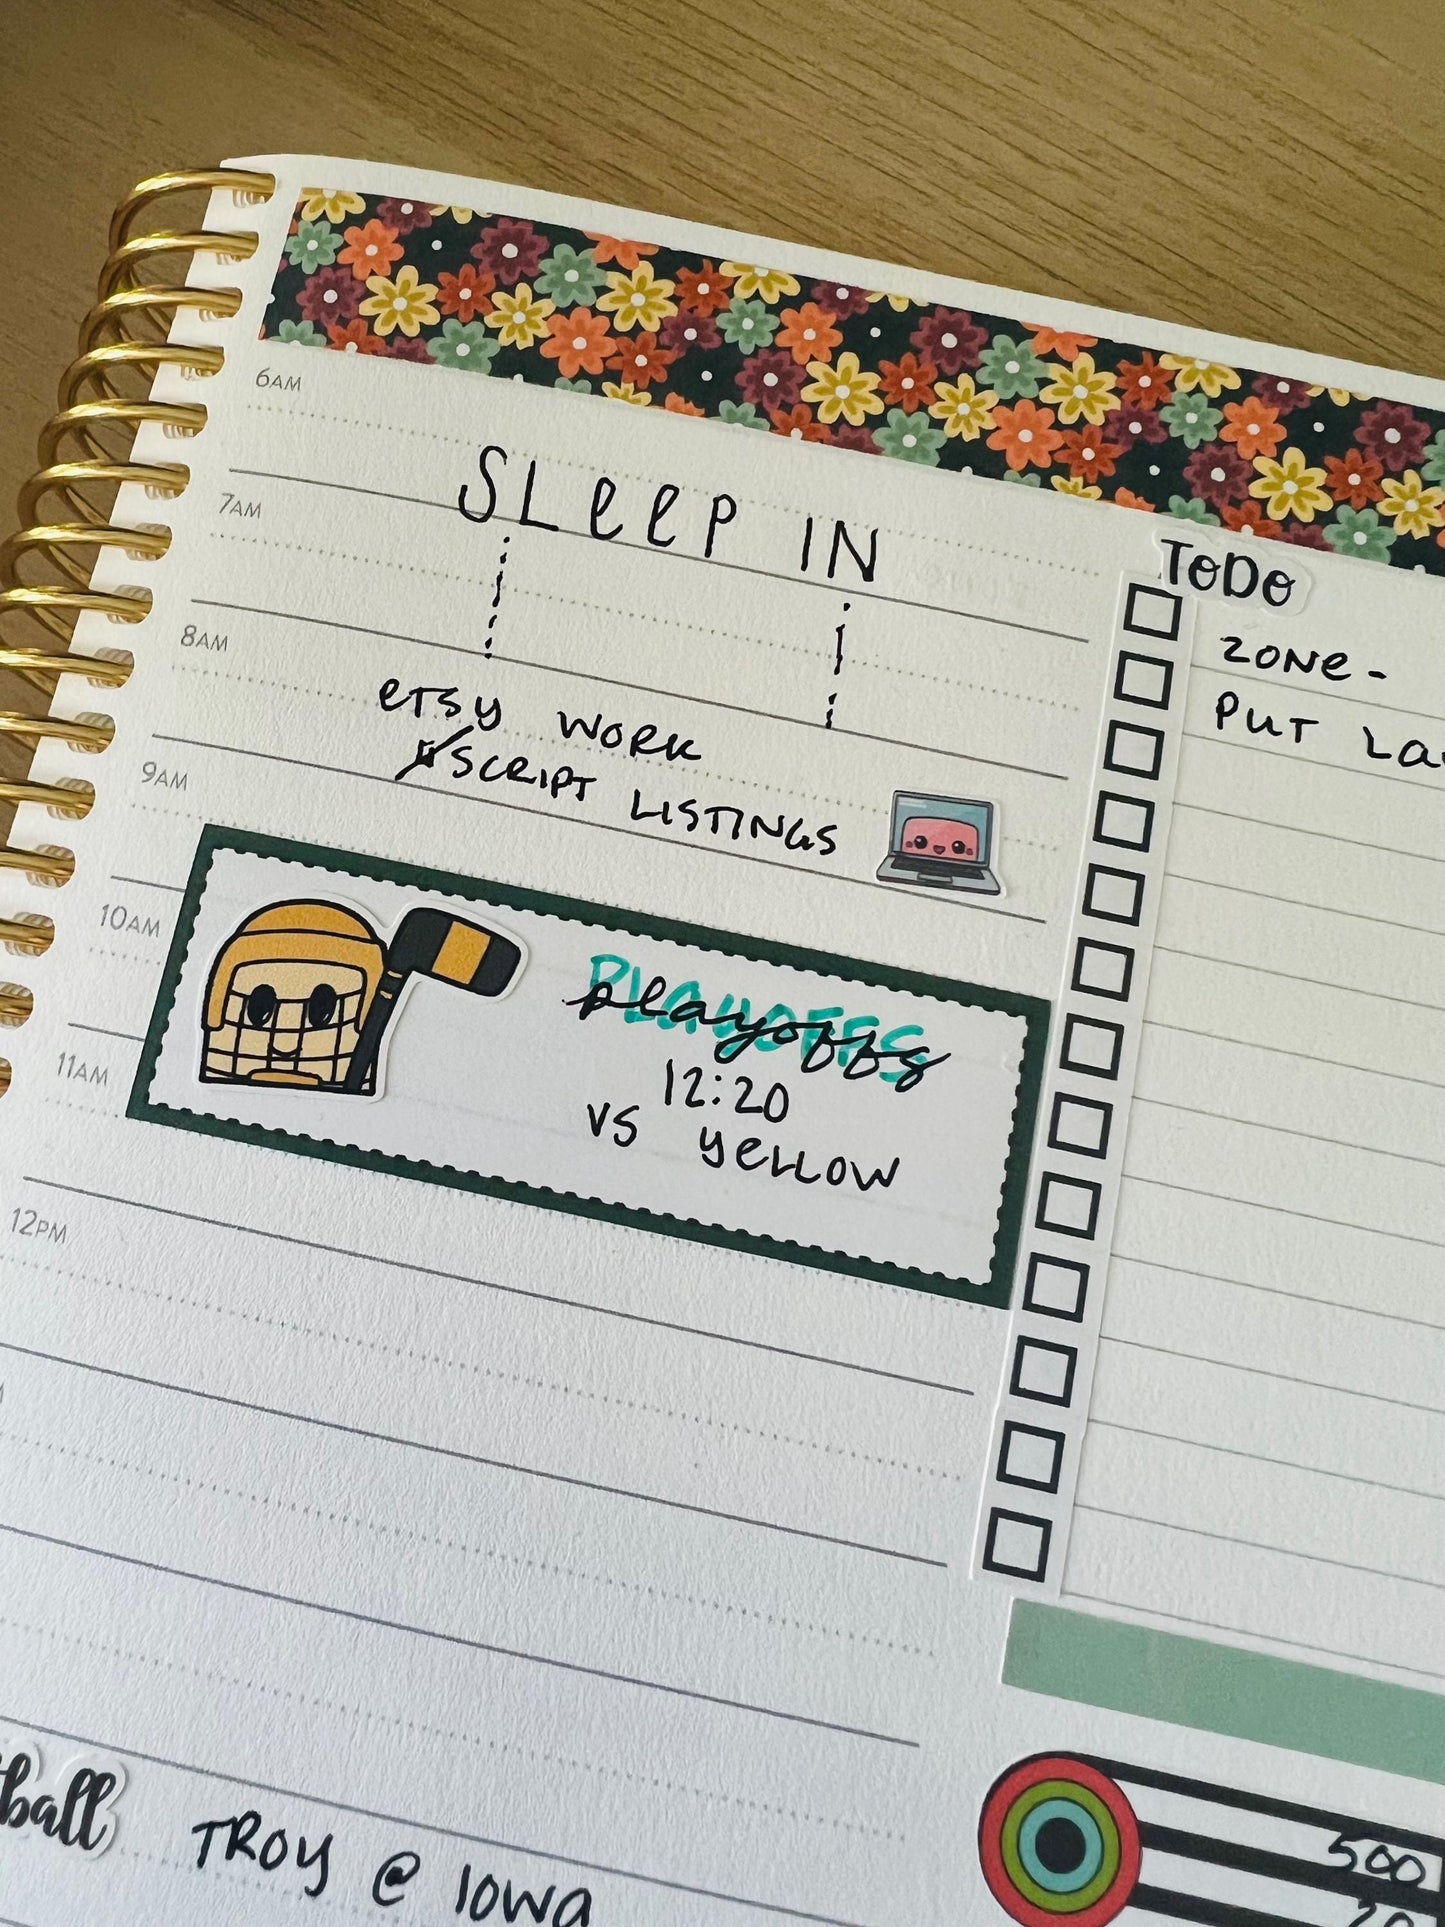 6AM
SLeep IN
7AM
8AM
eTSy WORK
SCRIPT LISTINGS
9AM
10AM
PLAYOFFS
playoffs
12:20
VS yeLLOW
11AM
12PM
TROY @ IOWA
ToDo
ZONe -
PUT
500
20